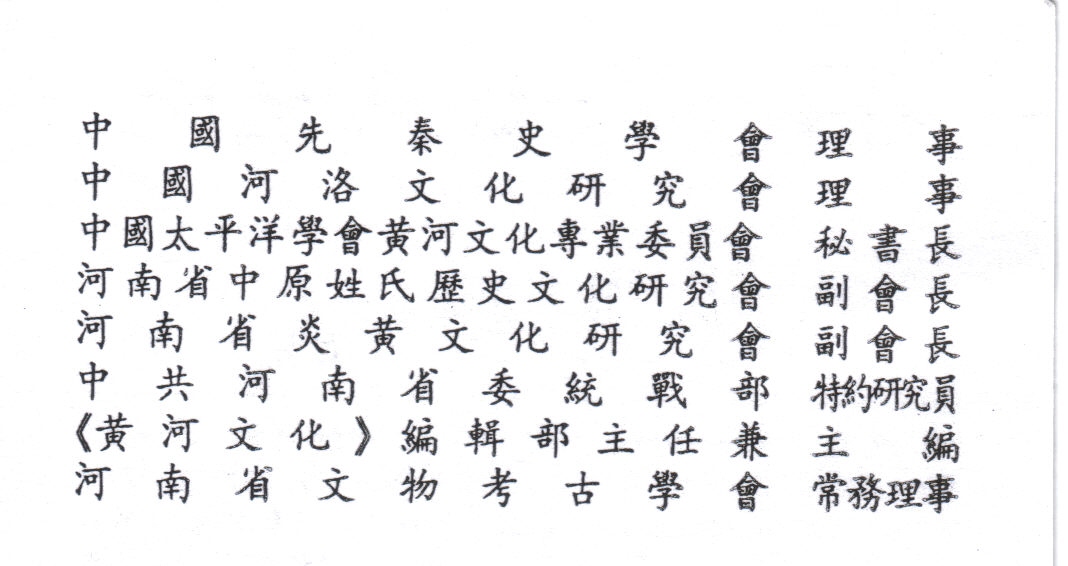 中國先秦史學會理事
中國河洛文化研究會理事
中國太平洋學會黄河文化專業委員會 秘書長
河南省中原姓氏歷史文化研究會 副會長
河南省炎黄文化研究會 副會長
中共河南省委統戰部 特約研究員
《黄河文化》編輯部主任兼主編
河南省文物考古學會 常務理事